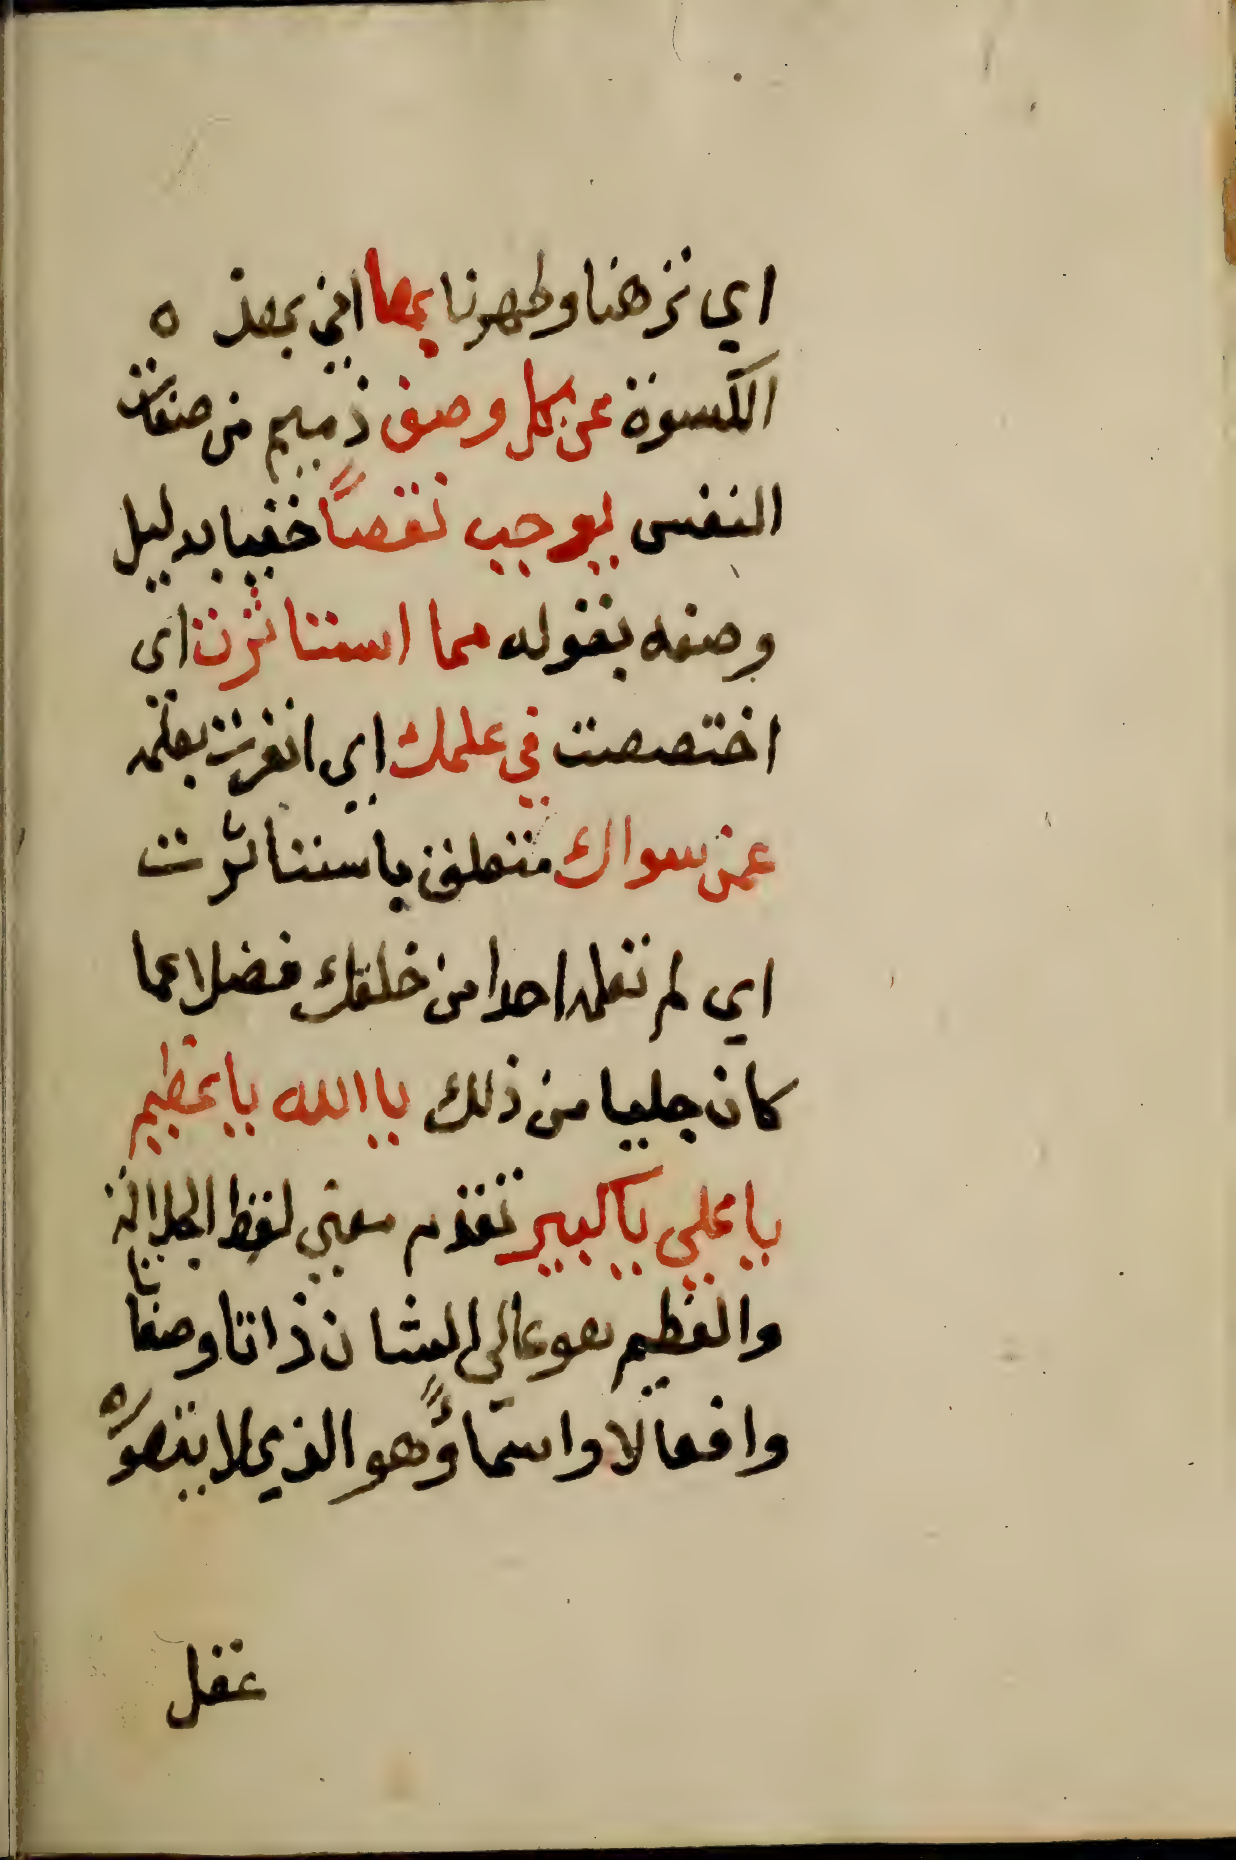 اي نزهنا وطهرنا بها اي بهذه
الكسوة عن كل وصف ذميم من صفات
النفس يوجب نقصًا خفيا بدليل
وصفه بقوله مما استاثرت اي
اختصصت في علمك اي انفردت بعلمه
عمن سواك متعلق باستاثرت
اي لم تعلمه احدا من خلقك فضلا عما
كان جليا من ذلك يا الله يا عظيم
يا علي يا كبير تقدم معنى لفظ الجلالة
والعظيم هو عالي الشان ذاتا وصفاتا
وافعالا واسماءً وهو الذي لا يتصوره
عقل